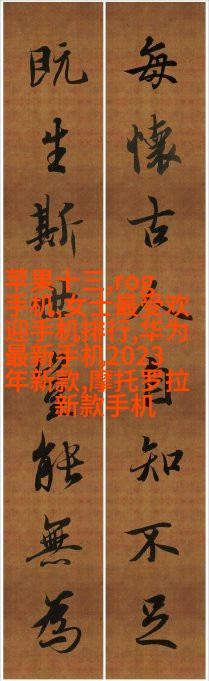 每懷古人自知不足
既生斯世能無為
苹果十三,rog
手机,女士最受欢
迎手机排行,华为
最新手机,2023
年新款,摩托罗拉
新款手机